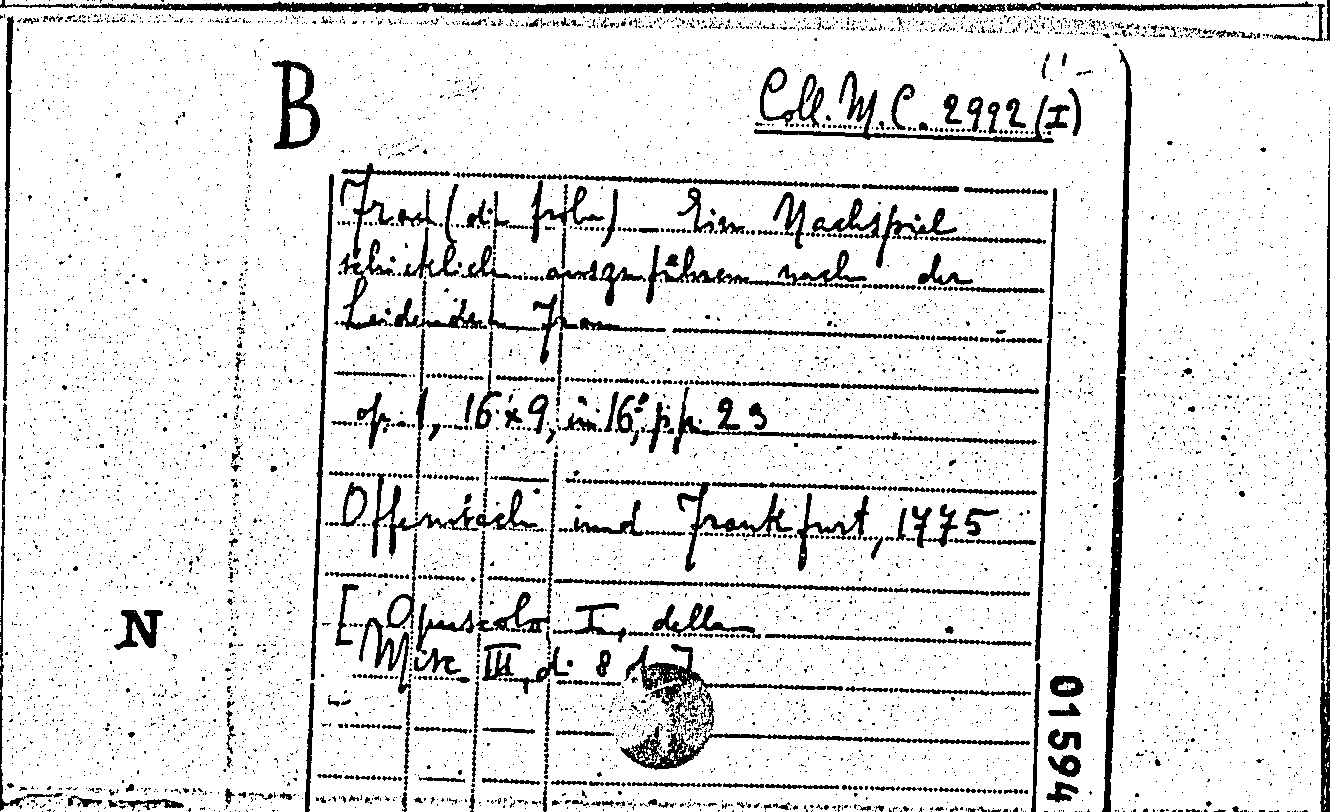 B
Coll. M. C. 2992 (I)
Frau (die frohe) Ein Nachspiel
schicklich auszuführen nach der
Leidenden Frau
op. 1, 16 x 9, in 16°, pp. 23
Offenbach und Frankfurt, 1775
[Opuscolo I, della
Misc. III, di 8 d. ]
N
01594